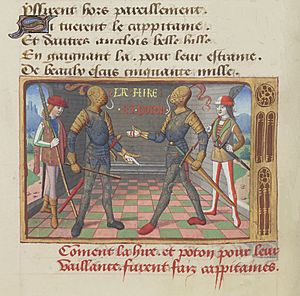 Yssirent hors pareillement.
Si tuerent le cappitaine
Et dautres anglois belle bille
En gaignant la pour leur estraine
De beaulx escus cinquante mille
LA HIRE
ET POTON
Coment la hire et poton pour leur
vaillance furent faiz cappitaines.